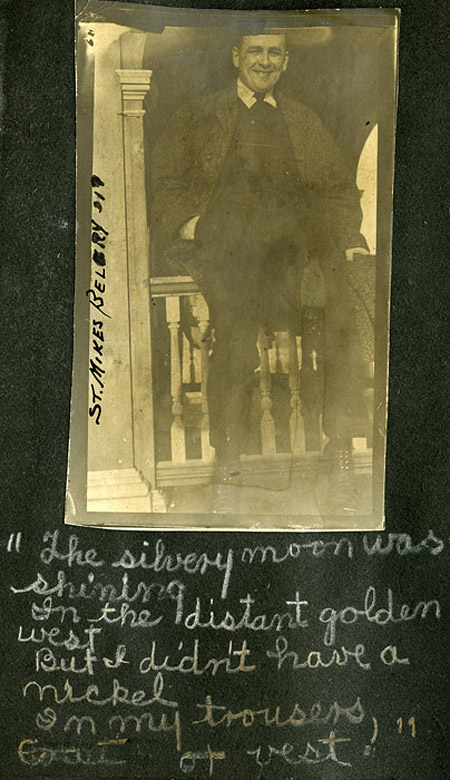 St. Mikes Belery 219
" The silvery moon was
shining
In the distant golden
west
But I didn't have a
nickel
In my trousers, "
Coat or vest "